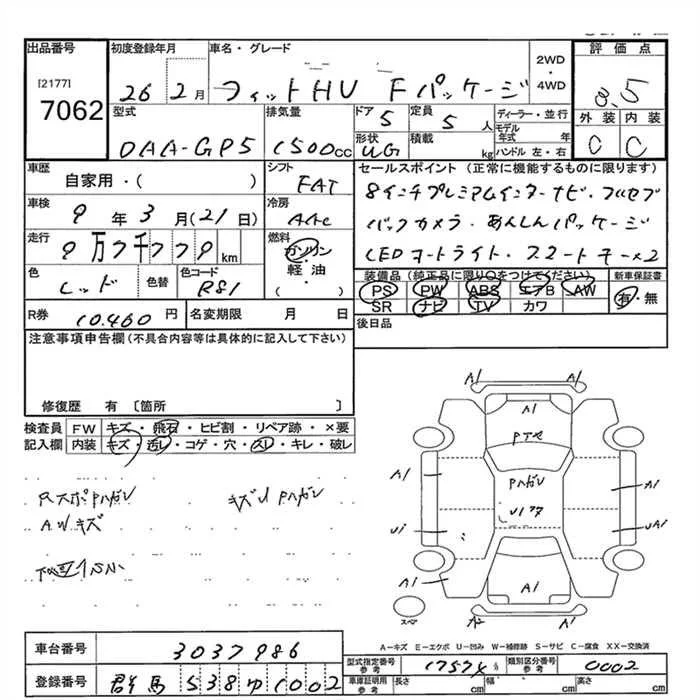 出品番号 初度登録年月 車名・グレード 2WD・4WD 評価点
[2177]
7062
26 2月 フィットHV Fパッケージ 3.5
型式 排気量 ドア 5 定員 5人 ディーラー・並行 外装 内装
モデル年式 年
DAA-GP5 1500cc 形状 積載 kg ハンドル 左・右 C C
車歴 シフト セールスポイント (正常に機能するものに限ります)
自家用・( ) FAT
8インチプレミアムインターナビ・フルセグ
車検 9年3月(21日) 冷房 AAC
バックカメラ・あんしんパッケージ
走行 9万7千779km 燃料 ガソリン・軽油・( )
LEDヘッドライト・スマートキー×2
色 レッド 色替 色コード R81
装備品 (純正品に限り○をつけてください) 新車保証書
PS PW ABS エアB AW 有・無
SR ナビ TV カワ
R券 10.460円 名変期限 月 日
後日品
注意事項申告欄 (不具合内容等は具体的に記入して下さい)
修復歴 有 〔箇所 〕
検査員記入欄 FW キズ・飛石・ヒビ割・リペア跡・×要
内装 キズ・汚レ・コゲ・穴・スレ・キレ・破レ
A1 A1
A1
Pハガレ
A1 A1
RスポPハガレ キズPハガレ
AWキズ
A1
A1
A2 A1
スペア
A-キズ E-エクボ U-凹み W-補修跡 S-サビ C-腐食 XX-交換済
車台番号 3037986
型式指定番号 参考 17574 類別区分番号 参考 0002
登録番号 群馬 538ゆ1002
車庫証明用 参考 長さ cm 幅 cm 高さ cm